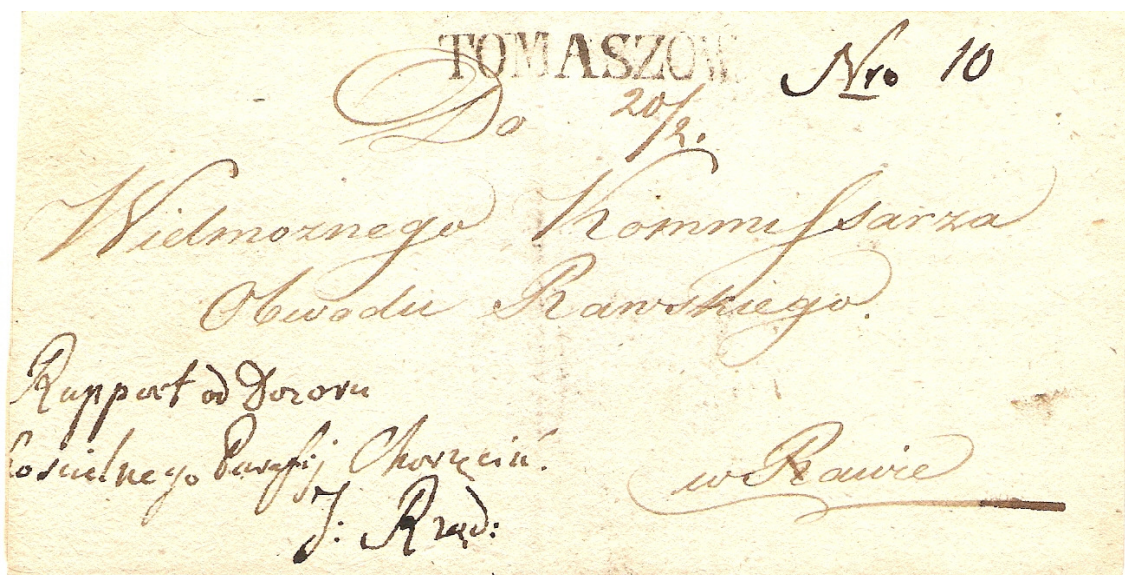 TOMASZOW
Nro 10
Do 20/2.
Wielmoznego Kommissarza
Obwodu Rawskiego.
Rapport od Dozoru
Kościelnego Parafij Chorzęciń.
J: Rząd:
w Rawie